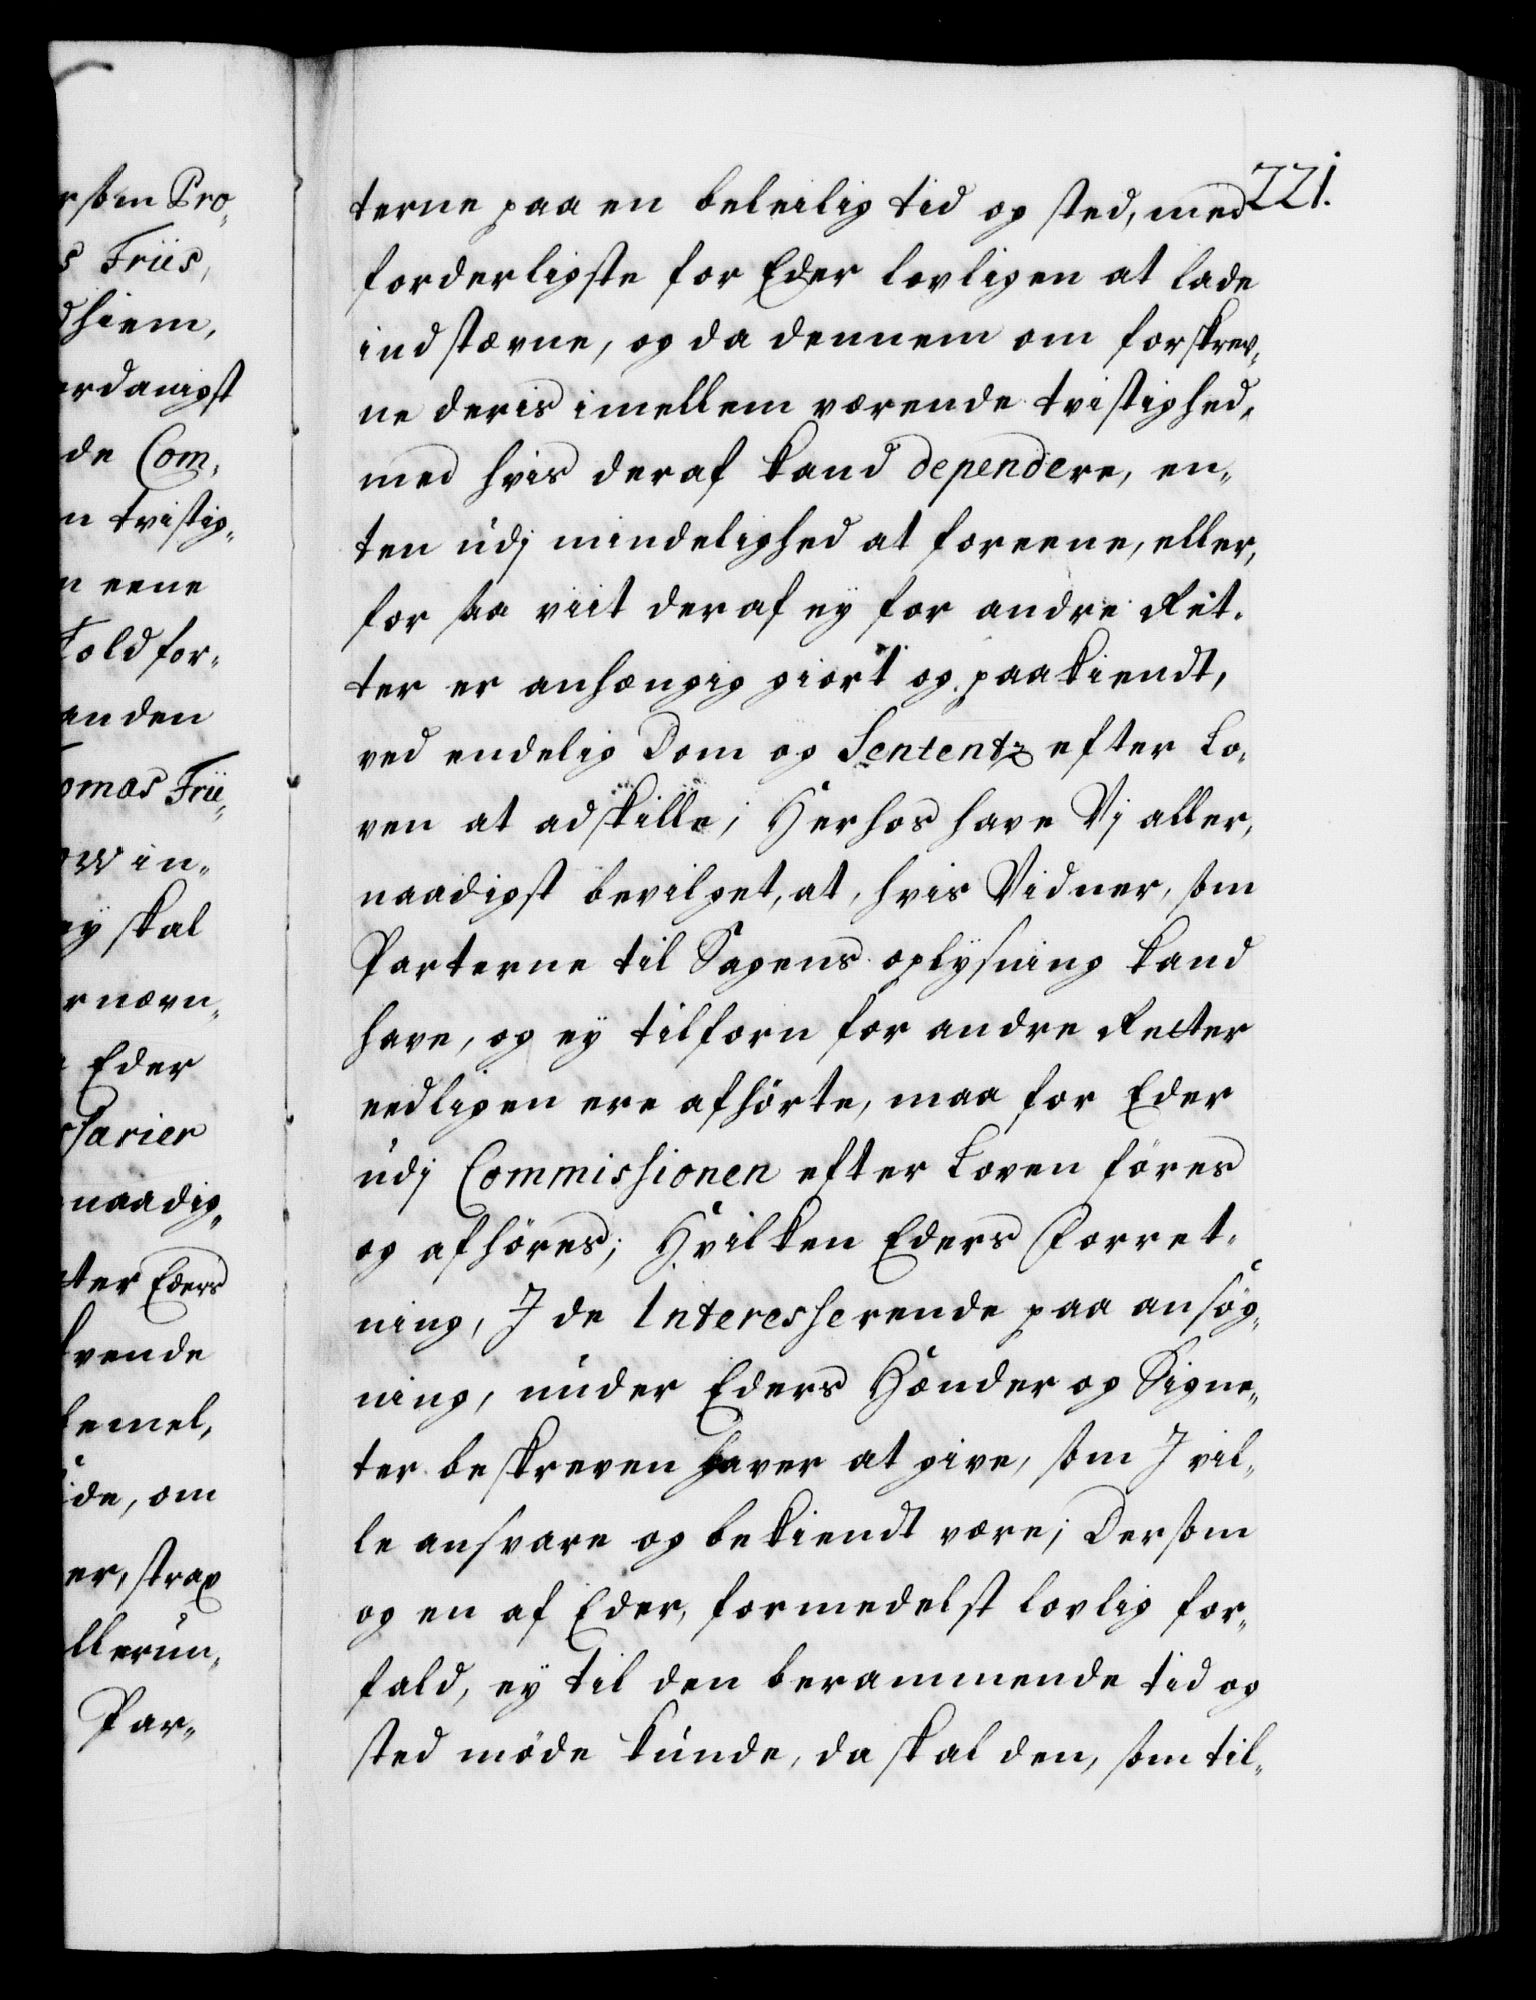 rsom Pro„
s Friis,
dhiem,
erdanigst
de Com„
n tvistig„
n eene
Told for„
anden
omas Frii„
ow in„
ey skal
r nævn„
Eder
sarier
naadig„
ter Eders
kvende
kemel,
ide, om
er, strax
llerun„
Par„
221.
terne paa en beleilig tid og sted, med
forderligste for Eder lovligen at lade
indstævne, og da dennem om forskrev„
ne deris imellem værende tvistighed,
med hvis deraf kand dependere, en„
ten udj mindelighed at foreene, eller,
for saa viit deraf ey for andre Ret„
ter er anhængig giort og paakiendt,
ved endelig Dom og Sententz efter Lo„
ven at adskille; Herhos have Vj aller„
naadigst bevilget, at, hvis Vidner, som
Parterne til Sagens oplysning kand
have, og ey tilforn for andre Retter
eedligen ere afhørte, maa for Eder
udj Commissionen efter Loven føres
og afhøres; Hvilken Eders Forret„
ning, J de Interesserende paa ansøg„
ning, under Eders Hænder og Signe„
ter beskreven haver at give, som J vil„
le ansvare og bekiendt være; Dersom
og en af Eder, formedelst lovlig for„
fald, ey til den berammende tid og
sted møde kunde, da skal den, som til„